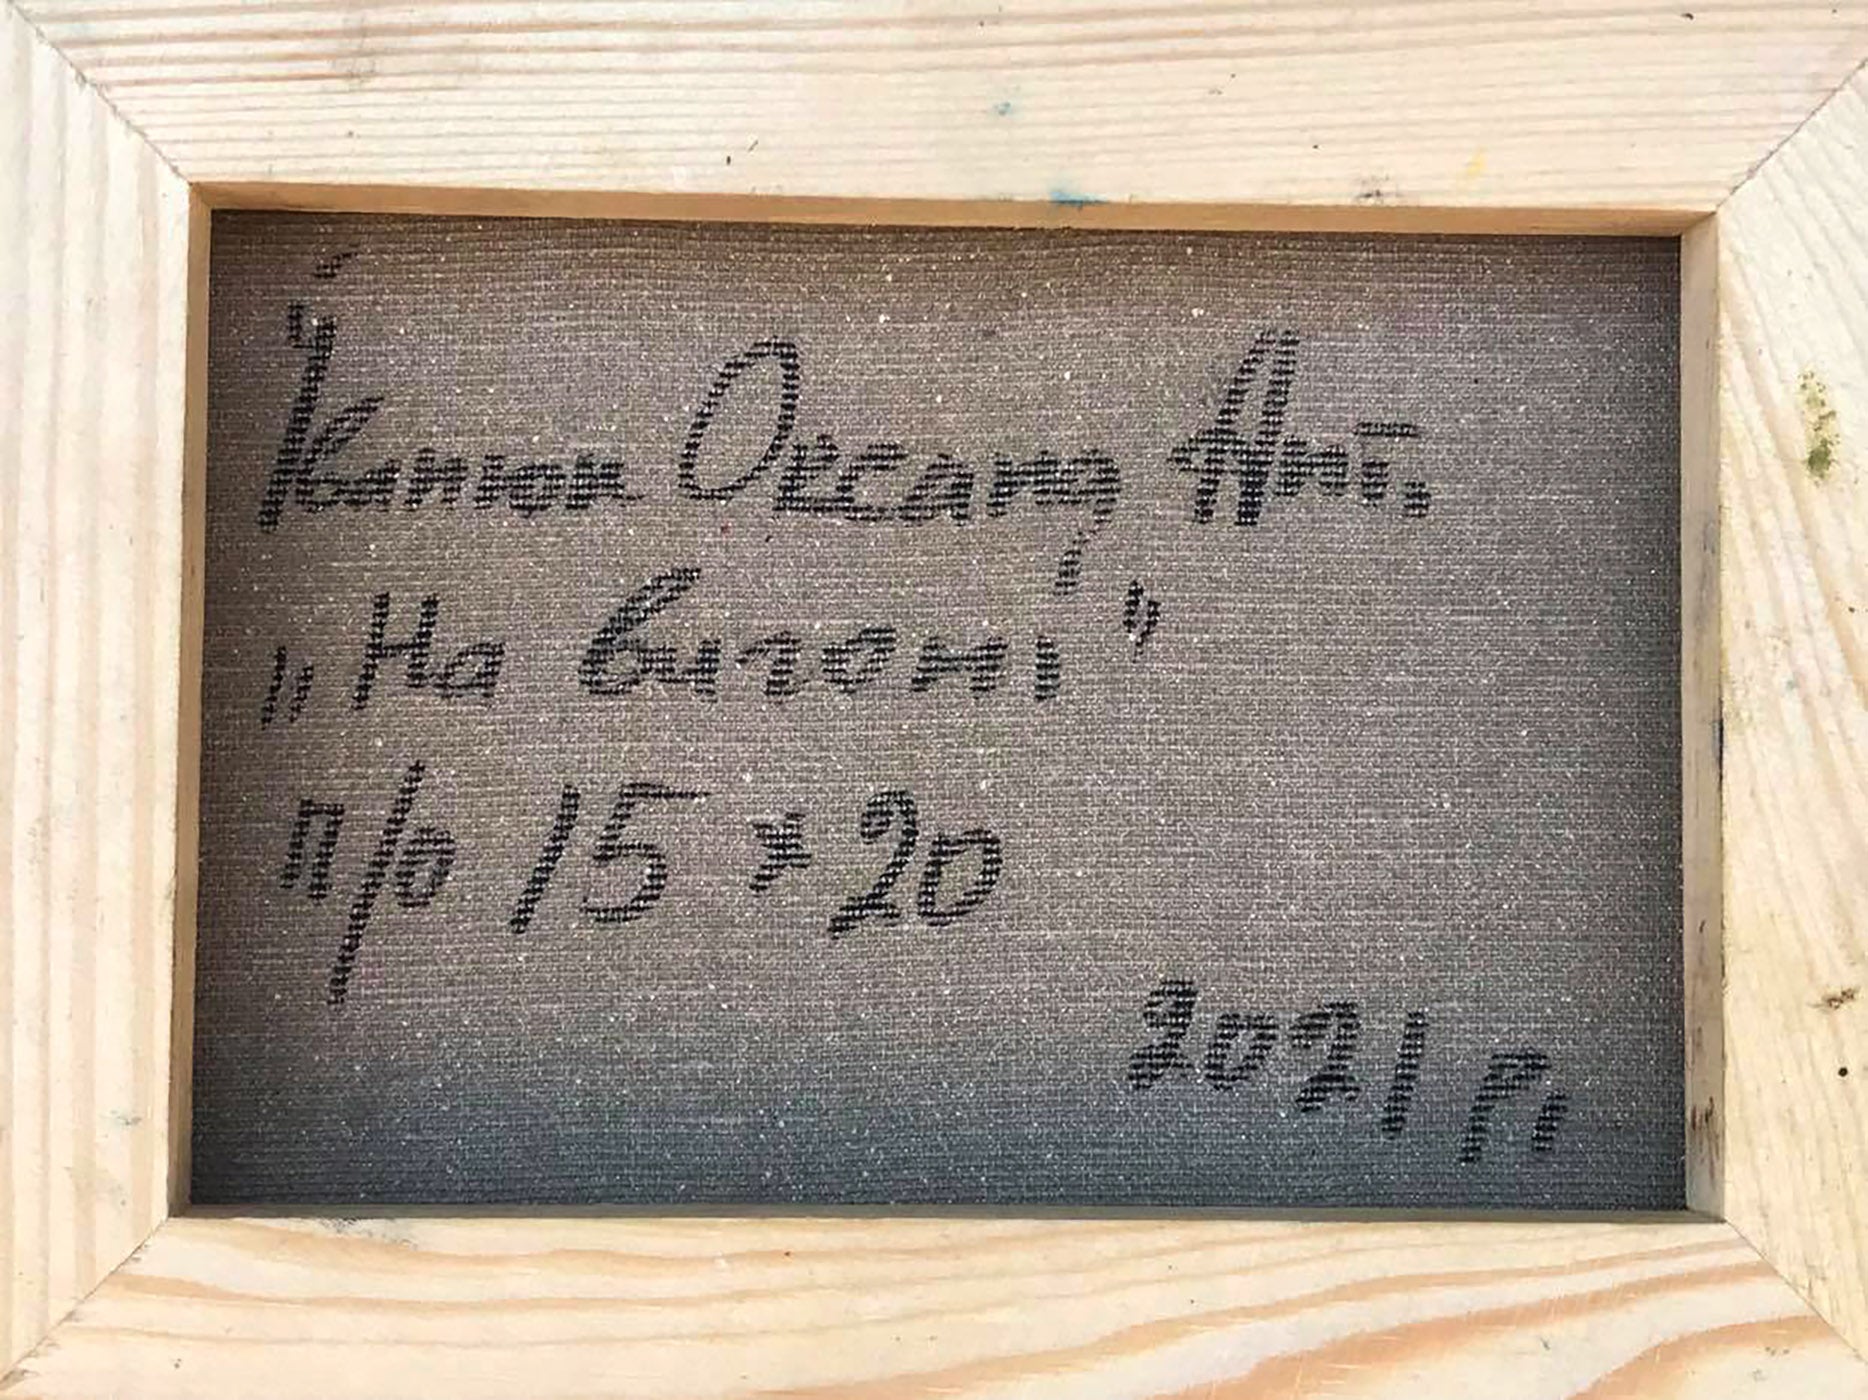 Іванюк Оксана Ант.
„На вигоні”
п/о 15 × 20
2021 р.